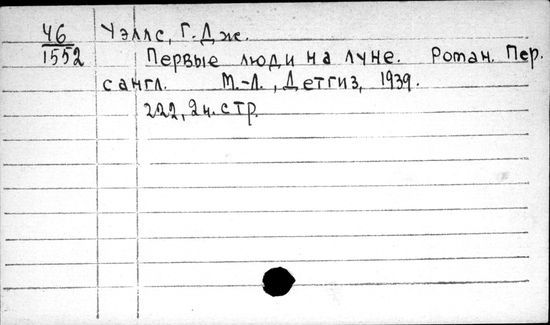 46
1552
Уэллс, Г. Дж.
Первые люди на луне. Роман. Пер.
с англ. М.-Л., Детгиз, 1939.
222, 2н. стр.